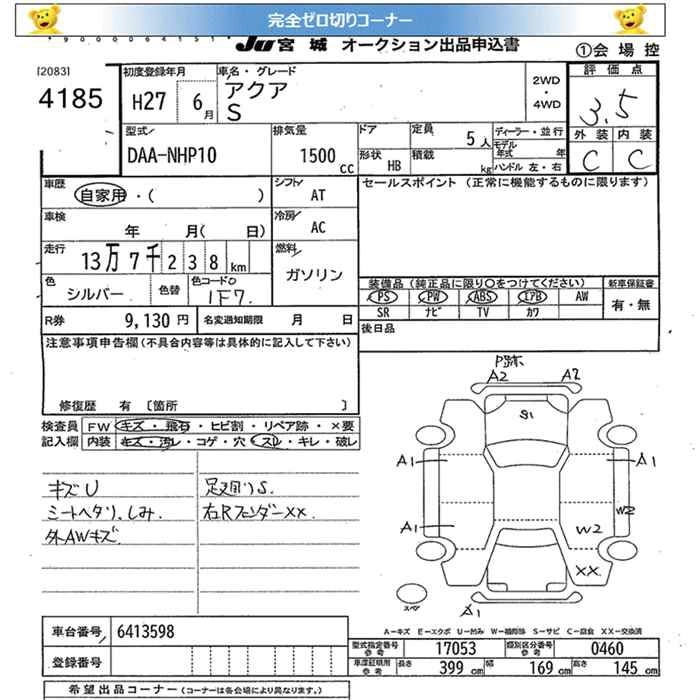 完全ゼロ切りコーナー
JU 宮 城 オークション出品申込書
①会 場 控
[2083]
4185
初度登録年月
H27 6月
車名・グレード
アクア
S
2WD
・
4WD
評 価 点
3.5
外 装 内 装
C C
型式/
DAA-NHP10
排気量
1500cc
ドア
形状 HB
定員 5人
積載 kg
ディーラー・並行
モデル年式 年
ハンドル 左・右
車歴
自家用・( )
シフト/
AT
セールスポイント (正常に機能するものに限ります)
車検
年 月( 日)
冷房/
AC
走行
13万7千238km
燃料/
ガソリン
色
シルバー
色替
色コードNO
1F7.
装備品(純正品に限り○をつけてください)
新車保証書
PS PW ABS エアB AW
SR ナビ TV カワ
有・無
R券 9,130円
名変通知期限 月 日
後日品
注意事項申告欄(不具合内容等は具体的に記入して下さい)
修復歴 有 〔箇所 〕
検査員
記入欄
FW キズ・飛石・ヒビ割・リペア跡・×要
内装 キズ・汚レ・コゲ・穴・スレ・キレ・破レ
キズU
シートヘタリ、しみ.
外AWキズ
足廻りS.
右Rフェンダーxx.
P跡
A2
A2
S1
A1
A1
A1
W2
W2
XX.
A1
スペア
A-キズ E-エクボ U-凹み W-補修跡 S-サビ C-腐食 XX-交換済
車台番号/ 6413598
登録番号
型式指定番号
参考
17053
類別区分番号
参考
0460
車庫証明用
参考
長さ 399cm 幅 169cm 高さ 145cm
希望出品コーナー(コーナーは各会場により異なります。)